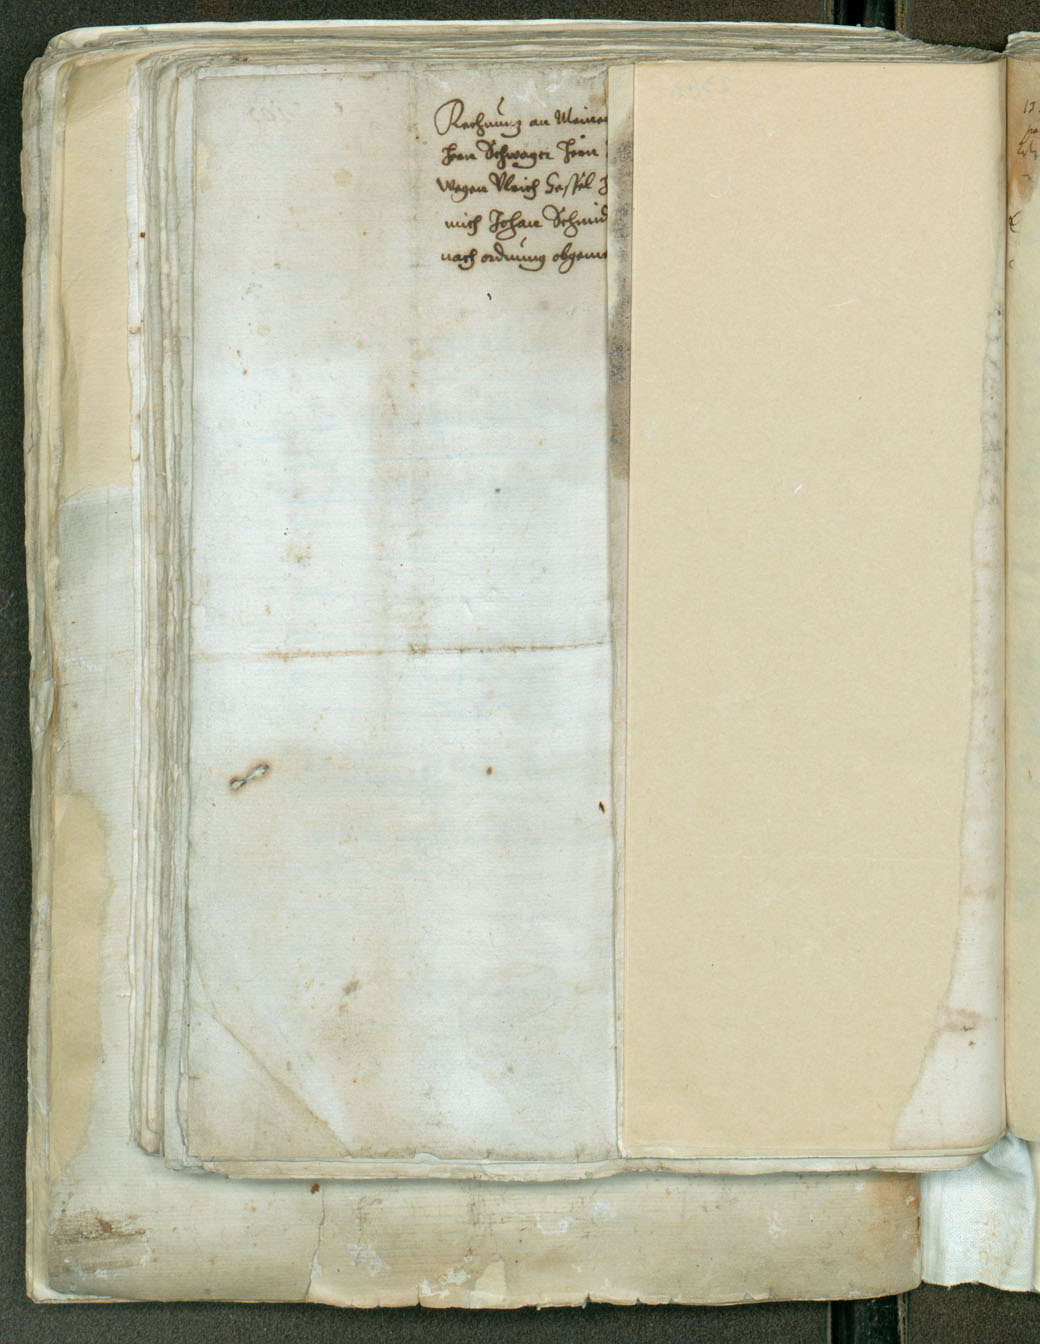 Rechnung an Meinen
Hern Schwager Hern
wegen Vlrich Hessel
mich Johan Schmid
nach ordnung obgeme